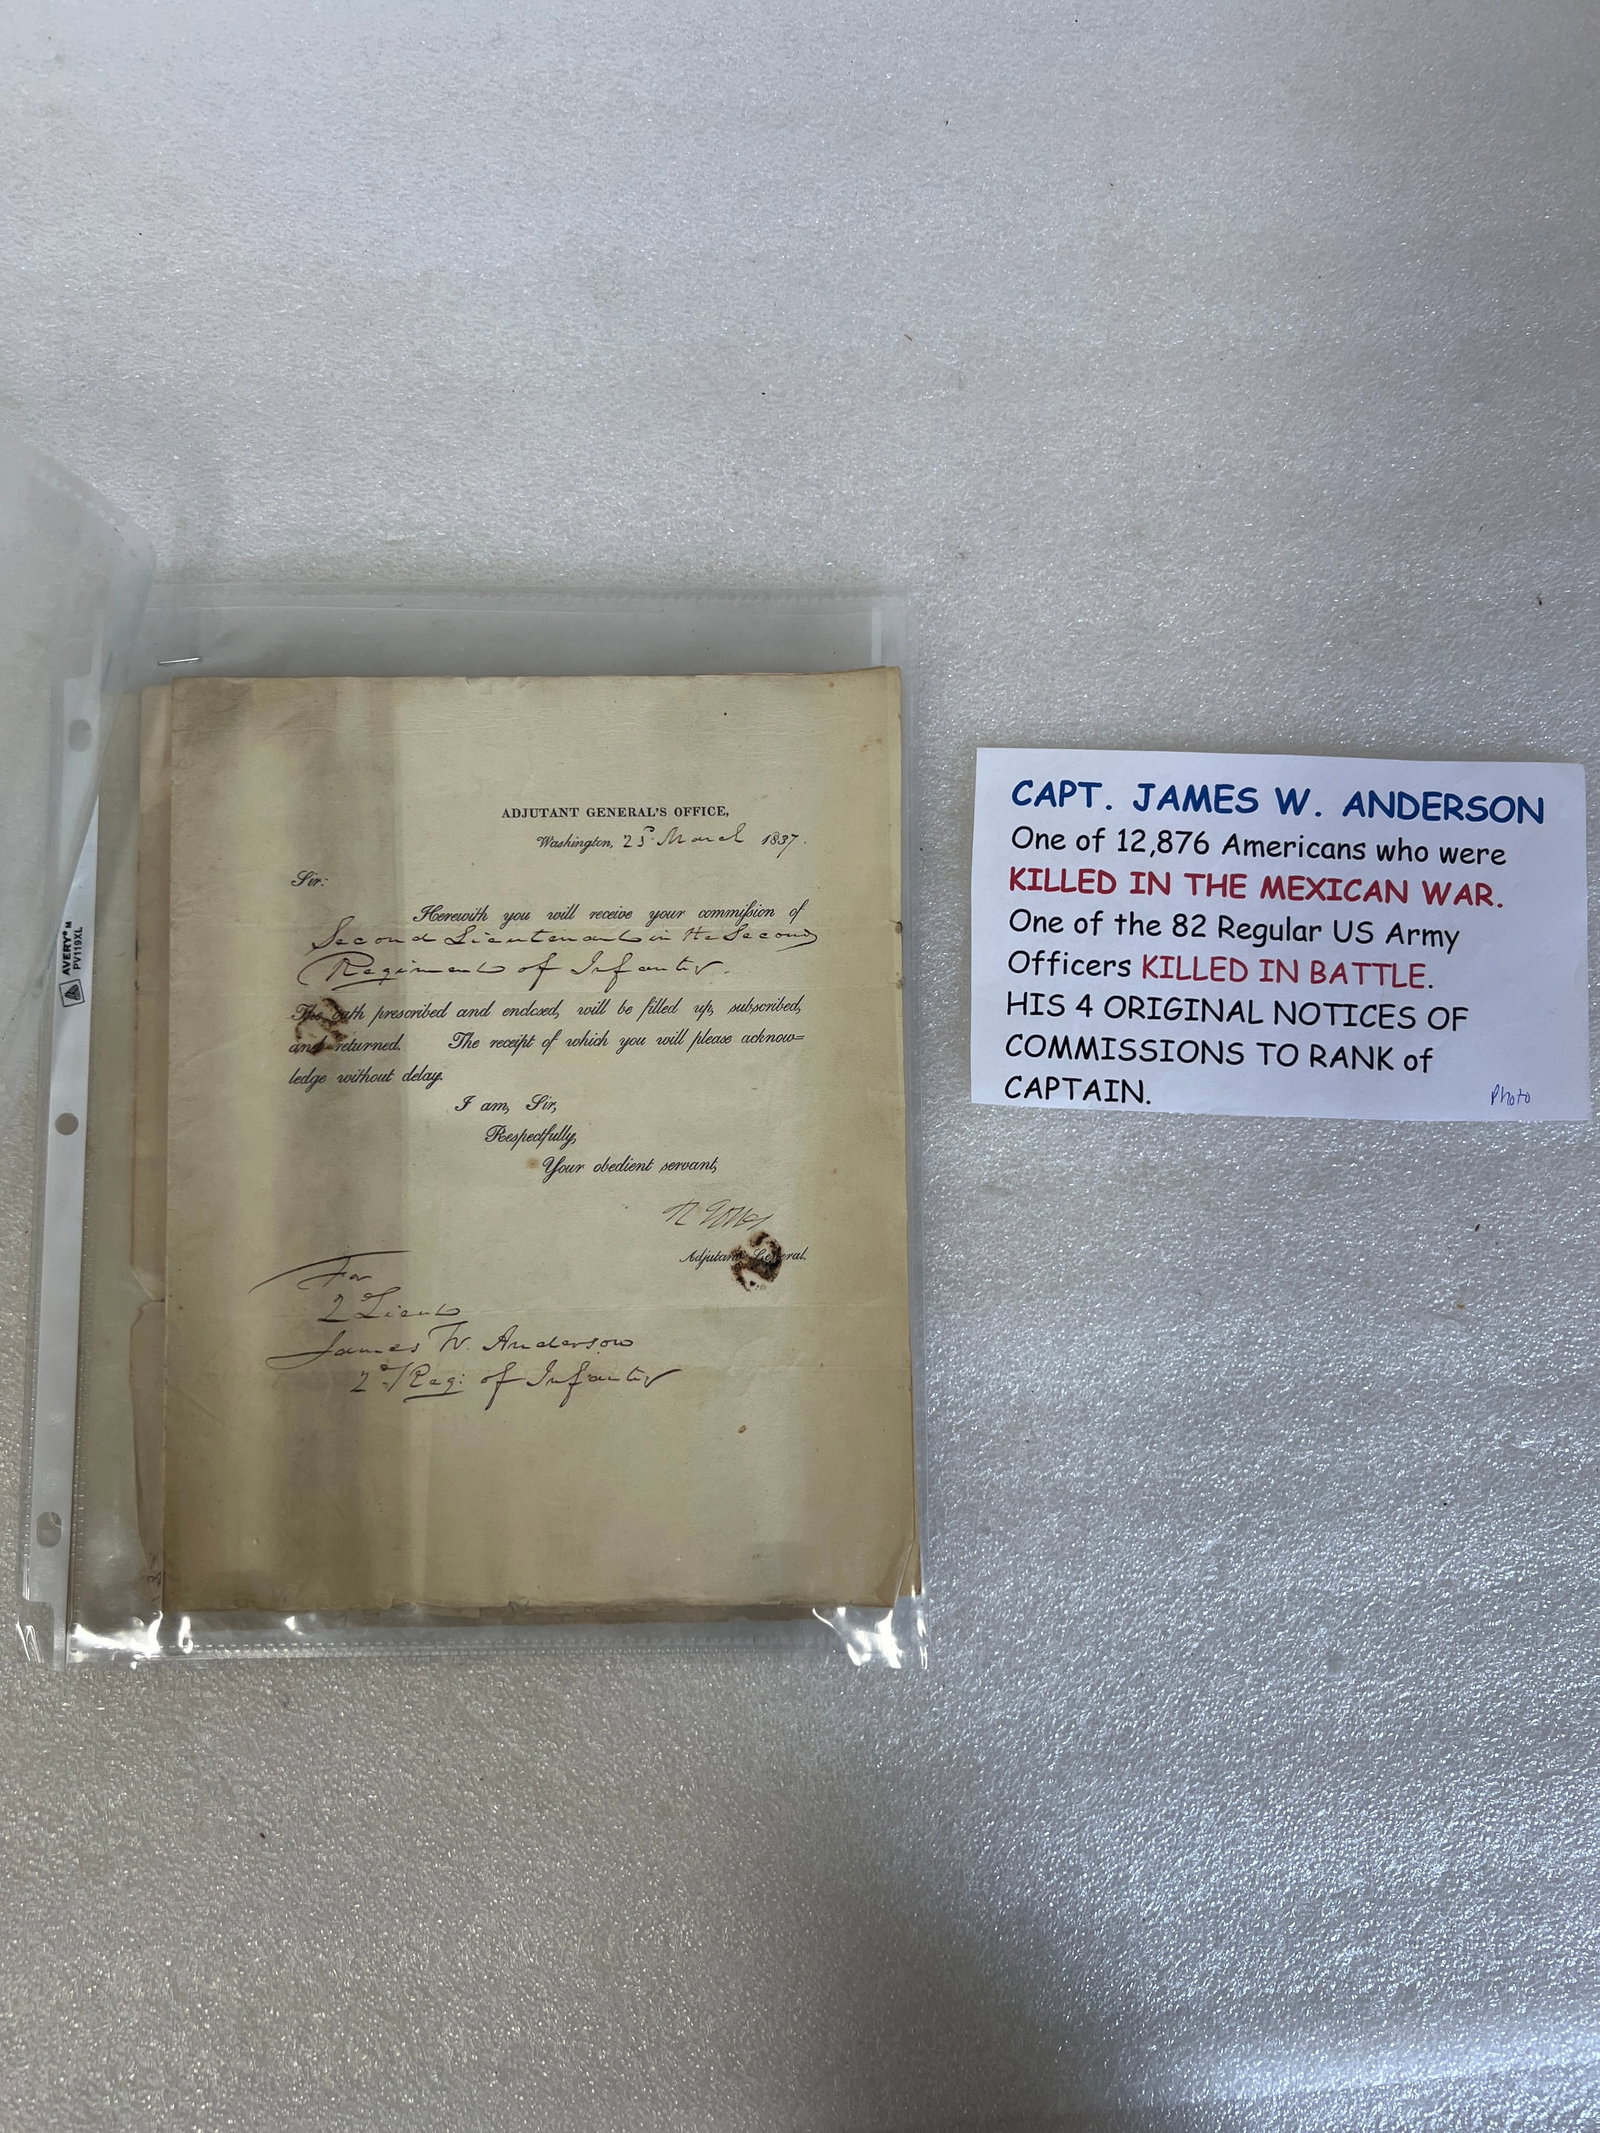 ADJUTANT GENERAL'S OFFICE,
Washington, 25 March 1837.
Sir:
Herewith you will receive your commission of
Second Lieutenant in the Second
Regiment of Infantry.
The oath prescribed and enclosed, will be filled up, subscribed,
and returned. The receipt of which you will please acknow=
ledge without delay.
I am, Sir,
Respectfully,
Your obedient servant,
R Jones
Adjutant General.
For
2d Lieut
James W. Anderson
2d Reg: of Infantry
AVERY
PV119XL
CAPT. JAMES W. ANDERSON
One of 12,876 Americans who were
KILLED IN THE MEXICAN WAR.
One of the 82 Regular US Army
Officers KILLED IN BATTLE.
HIS 4 ORIGINAL NOTICES OF
COMMISSIONS TO RANK of
CAPTAIN.
Photo